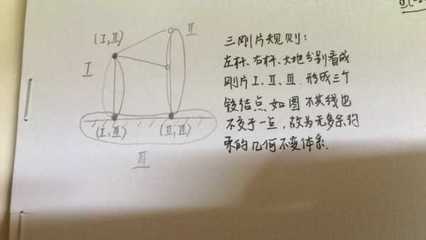 (I,II)
II
I
(I,III)
(II,III)
III
三刚片规则:
左杆、右杆、大地分别看成
刚片 I、II、III. 形成三个
铰结点,如图 不共线也
不交于一点,故为无多余约
束的几何不变体系.